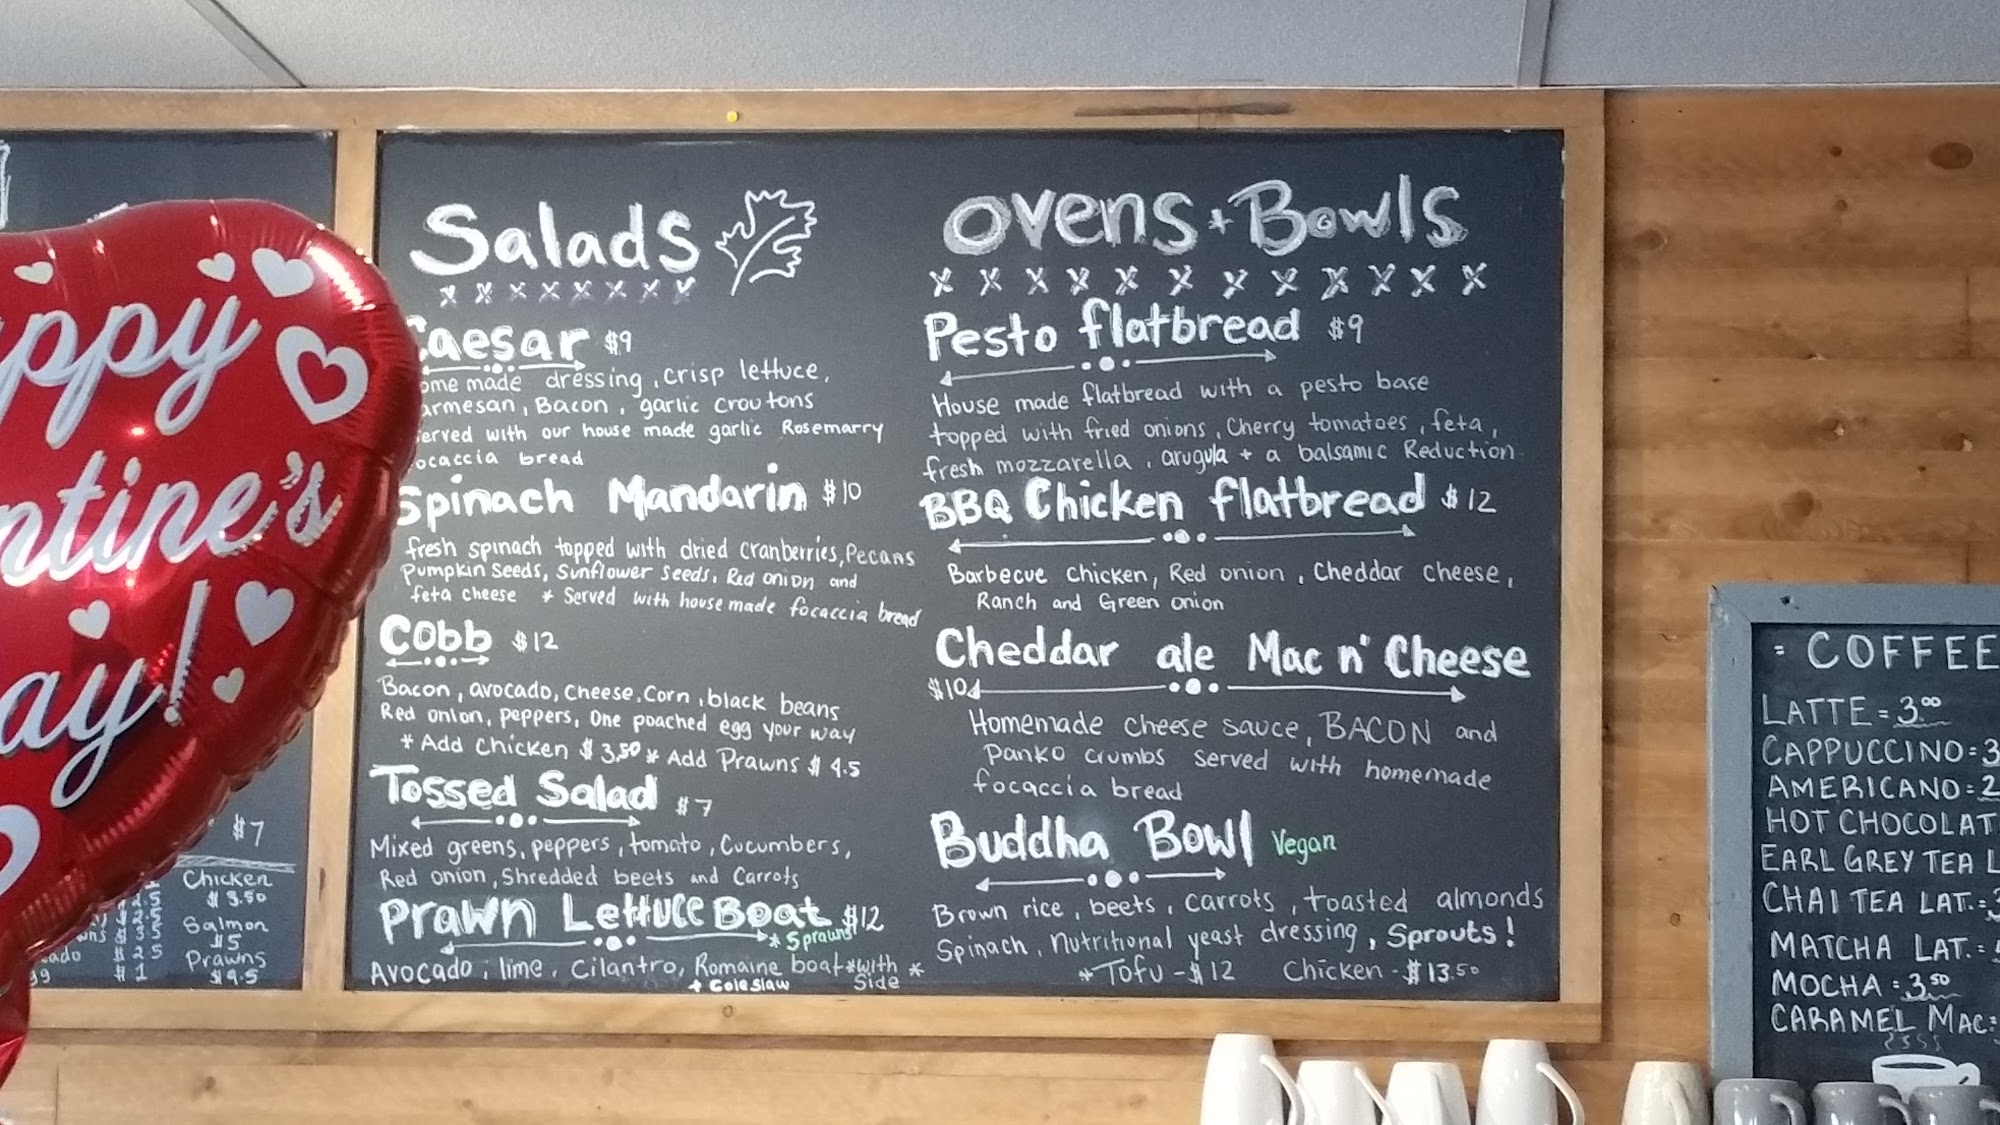 Salads
Caesar $9
ome made dressing, crisp lettuce,
armesan, Bacon, garlic croutons
erved with our house made garlic Rosemarry
ocaccia bread
Spinach Mandarin $10
fresh spinach topped with dried cranberries, Pecans
Pumpkin Seeds, Sunflower Seeds, Red onion and
feta cheese * Served with house made focaccia bread
Cobb $12
Bacon, avocado, cheese, corn, black beans
Red onion, peppers, One poached egg your way
* Add Chicken $3.50 * Add Prawns $4.5
Tossed Salad $7
Mixed greens, peppers, tomato, Cucumbers,
Red onion, Shredded beets and Carrots
Prawn Lettuce Boat $12
* 5 prawns
Avocado, lime, Cilantro, Romaine boat * with *
+ Coleslaw Side
Ovens + Bowls
Pesto flatbread $9
House made flatbread with a pesto base
topped with fried onions, Cherry tomatoes, feta,
fresh mozzarella, arugula + a balsamic Reduction.
BBQ Chicken flatbread $12
Barbecue Chicken, Red onion, Cheddar cheese,
Ranch and Green onion
Cheddar ale Mac n' Cheese
$10
Homemade cheese sauce, BACON and
Panko crumbs served with homemade
focaccia bread
Buddha Bowl Vegan
Brown rice, beets, carrots, toasted almonds
Spinach, Nutritional yeast dressing, Sprouts!
* Tofu - $12 Chicken - $13.50
ppy
ntine's
ay!
$7
Chicken
$3.50
Salmon
$5
Prawns
$4.5
2.5
$2.5
$3.5
$2.5
$1
= COFFEE
LATTE = 3.00
CAPPUCCINO = 3
AMERICANO = 2
HOT CHOCOLAT
EARL GREY TEA L
CHAI TEA LAT. =
MATCHA LAT. =
MOCHA = 3.50
CARAMEL MAC =